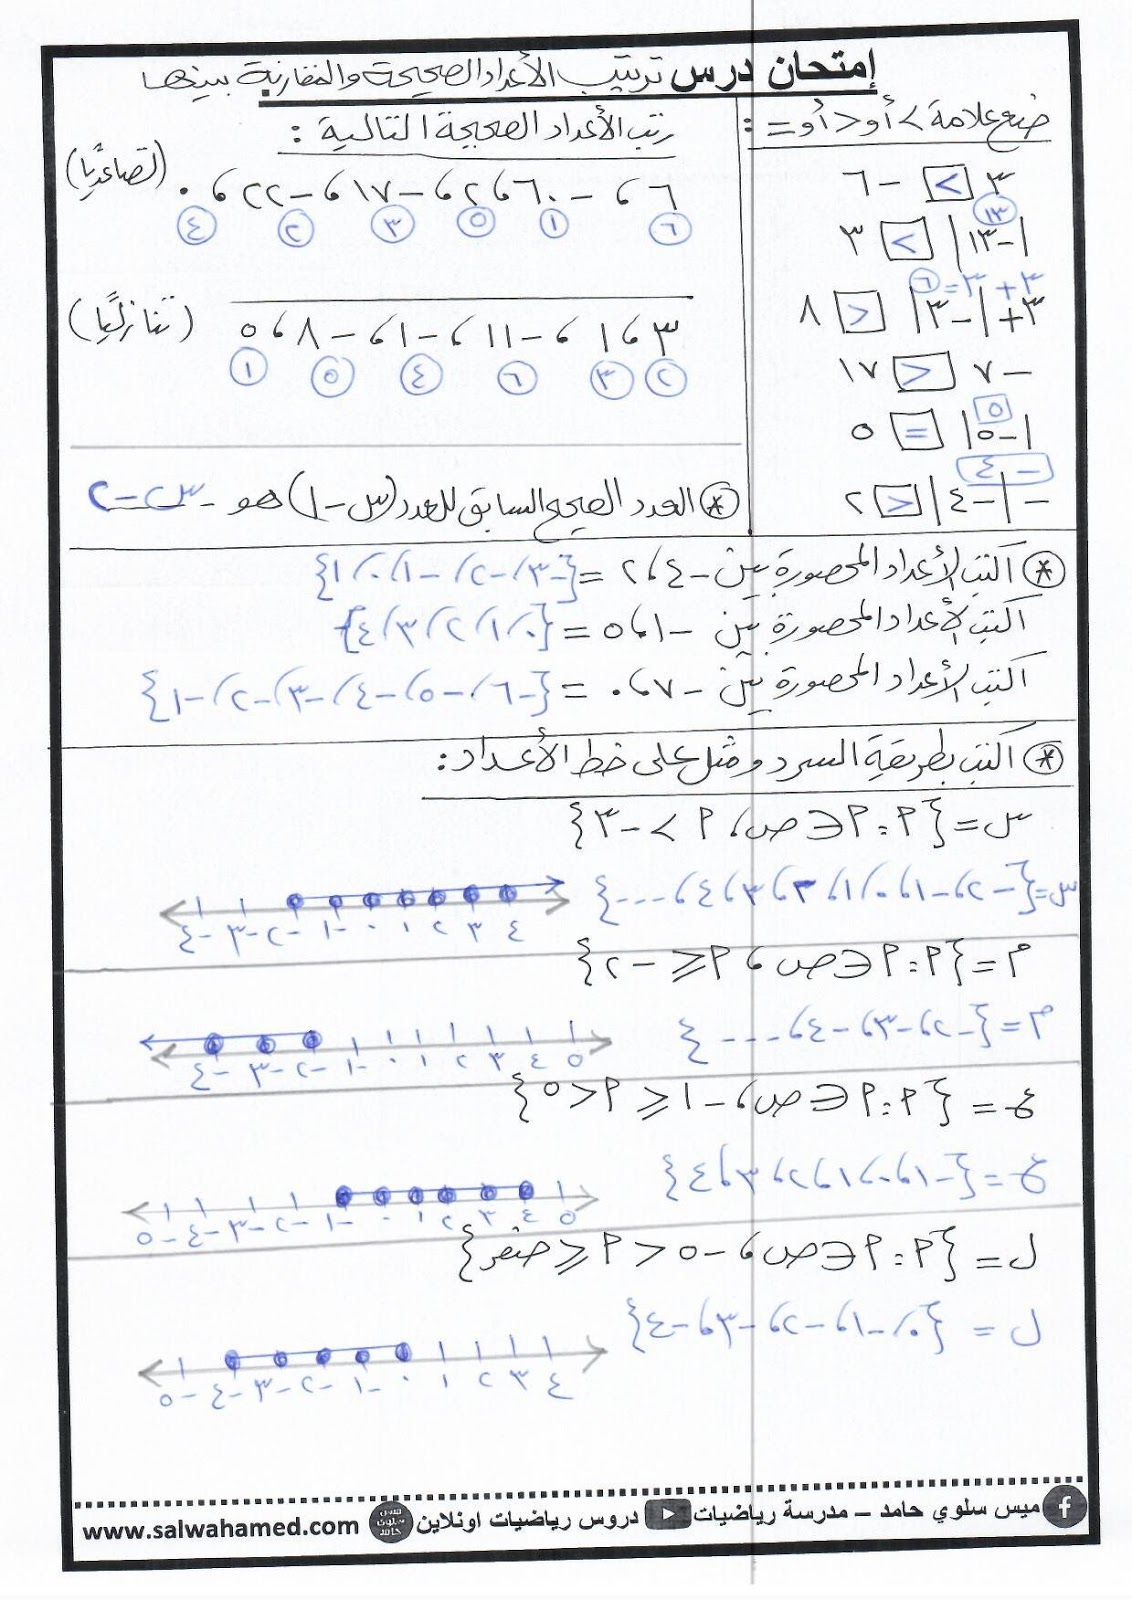 إمتحان درس ترتيب الأعداد الصحيحة والمقارنة بينها
ضع علامة > أو < أو = :
٣ > -٦
١٣
|-١٣| > ٣
٣ + ٣ = ٦
٣ + |-٣| < ٨
-٧ < ١٧
٥
|-٥| = ٥
-٤
-|-٤| < ٢
رتب الأعداد الصحيحة التالية :
٦ ، -٦٠ ، ٢ ، -١٧ ، -٢٢ ، ٠ (تصاعديًا)
٦ ١ ٥ ٣ ٢ ٤
٣ ، ١ ، -١١ ، -١ ، -٨ ، ٥ (تنازليًا)
٢ ٣ ٦ ٤ ٥ ١
* العدد الصحيح السابق للعدد (س - ١) هو س - ٢
* اكتب الأعداد المحصورة بين -٤ ، ٢ = {-٣ ، -٢ ، -١ ، ٠ ، ١}
اكتب الأعداد المحصورة بين -١ ، ٥ = {٠ ، ١ ، ٢ ، ٣ ، ٤}
اكتب الأعداد المحصورة بين -٧ ، ٠ = {-٦ ، -٥ ، -٤ ، -٣ ، -٢ ، -١}
* اكتب بطريقة السرد ومثل على خط الأعداد :
س = {٢ : ٢ ∈ ص ، ٢ > -٣}
س = {-٢ ، -١ ، ٠ ، ١ ، ٢ ، ٣ ، ٤ ، ...}
-٤ -٣ -٢ -١ ٠ ١ ٢ ٣ ٤
م = {٢ : ٢ ∈ ص ، ٢ ≤ -٢}
م = {-٢ ، -٣ ، -٤ ، ...}
-٤ -٣ -٢ -١ ٠ ١ ٢ ٣ ٤ ٥
ع = {٢ : ٢ ∈ ص ، -١ ≤ ٢ < ٥}
ع = {-١ ، ٠ ، ١ ، ٢ ، ٣ ، ٤}
-٥ -٤ -٣ -٢ -١ ٠ ١ ٢ ٣ ٤ ٥
ل = {٢ : ٢ ∈ ص ، -٥ < ٢ ≤ صفر}
ل = {٠ ، -١ ، -٢ ، -٣ ، -٤}
-٥ -٤ -٣ -٢ -١ ٠ ١ ٢ ٣ ٤
ميس سلوي حامد – مدرسة رياضيات دروس رياضيات اونلاين ميس سلوى حامد www.salwahamed.com